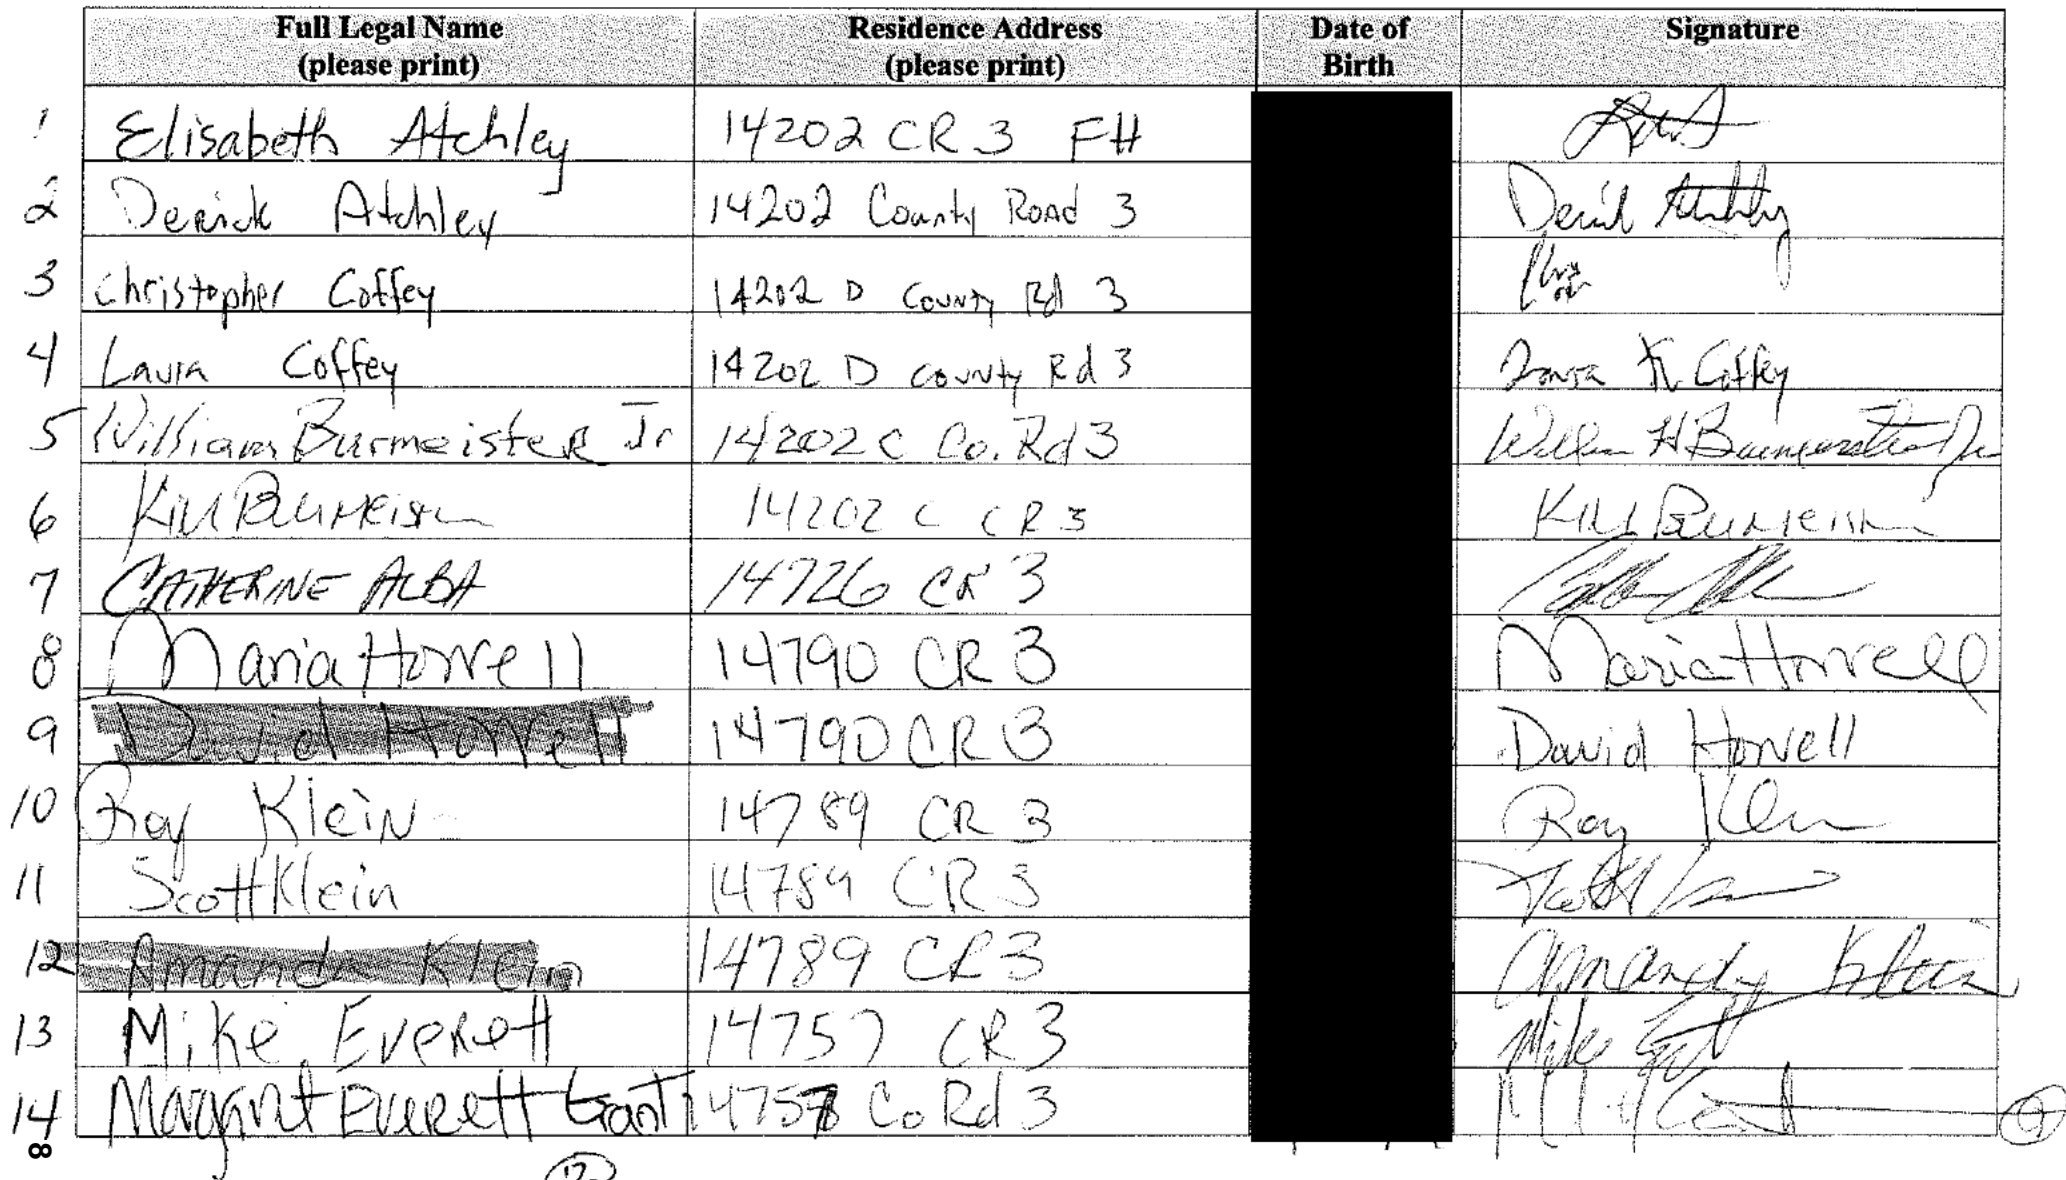 Full Legal Name (please print) Residence Address (please print) Date of Birth Signature
1 Elisabeth Atchley 14202 CR 3 FH
2 Derrick Atchley 14202 County Road 3 Atchley
3 Christopher Coffey 14202 D County Rd 3 Chris
4 Laura Coffey 14202 D County Rd 3 Laura K Coffey
5 William Burmeister Jr 14202 C Co. Rd 3 William H Burmeister Jr
6 14202 C CR 3
7 CATHERINE ALBA 14726 CR 3
8 Maria Howell 14790 CR 3 Maria Howell
9 David Howell 14790 CR 3 David Howell
10 Roy Klein 14789 CR 3 Roy Klein
11 Scott Klein 14789 CR 3
12 Amanda Klein 14789 CR 3 Amanda Klein
13 Mike Everett 14757 CR 3 Mike
14 Margaret Everett Gant 14757 Co Rd 3
8
12